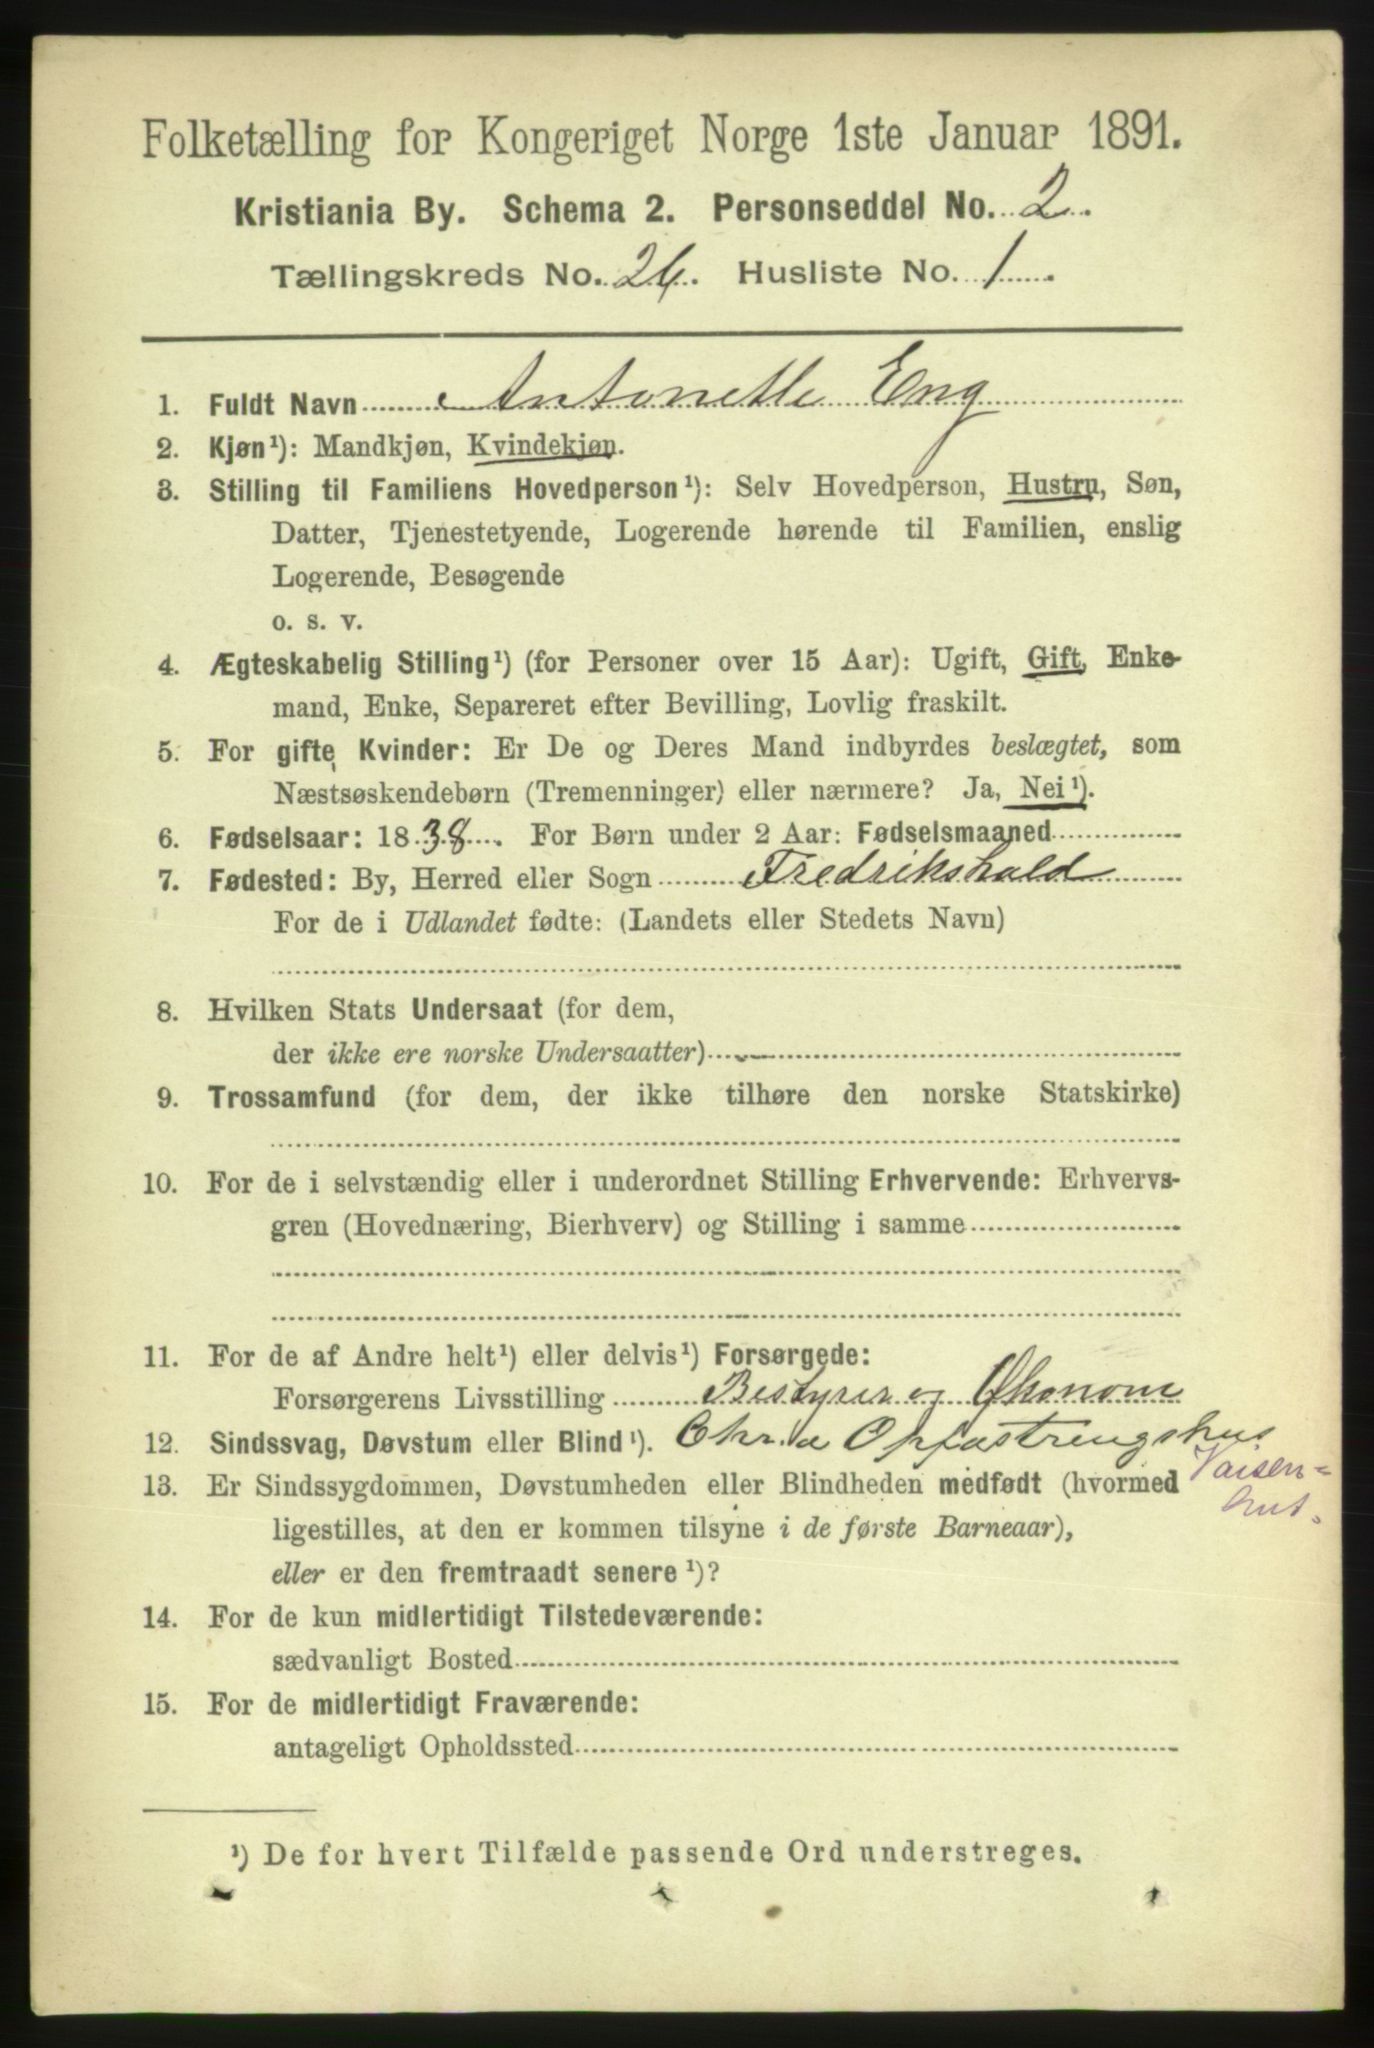 Folketælling for Kongeriget Norge 1ste Januar 1891.
Kristiania By. Schema 2. Personseddel No. 2.
Tællingskreds No. 26. Husliste No. 1
1. Fuldt Navn Antonette Eng
2. Kjøn¹): Mandkjøn, Kvindekjøn.
3. Stilling til Familiens Hovedperson¹): Selv Hovedperson, Hustru, Søn,
Datter, Tjenestetyende, Logerende hørende til Familien, enslig
Logerende, Besøgende
o. s. v.
4. Ægteskabelig Stilling¹) (for Personer over 15 Aar): Ugift, Gift, Enke-
mand, Enke, Separeret efter Bevilling, Lovlig fraskilt.
5. For gifte Kvinder: Er De og Deres Mand indbyrdes beslægtet, som
Næstsøskendebørn (Tremenninger) eller nærmere? Ja, Nei¹).
6. Fødselsaar: 1838. For Børn under 2 Aar: Fødselsmaaned
7. Fødested: By, Herred eller Sogn Fredrikshald
For de i Udlandet fødte: (Landets eller Stedets Navn)
8. Hvilken Stats Undersaat (for dem,
der ikke ere norske Undersaatter)
9. Trossamfund (for dem, der ikke tilhøre den norske Statskirke)
10. For de i selvstændig eller i underordnet Stilling Erhvervende: Erhvervs-
gren (Hovednæring, Bierhverv) og Stilling i samme
11. For de af Andre helt¹) eller delvis¹) Forsørgede:
Forsørgerens Livsstilling Bestyrer og Økonom
12. Sindssvag, Døvstum eller Blind¹). Chr.a Opfostrengshus
Vaisen-
13. Er Sindssygdommen, Døvstumheden eller Blindheden medfødt (hvormed
ligestilles, at den er kommen tilsyne i de første Barneaar),
eller er den fremtraadt senere¹)?
14. For de kun midlertidigt Tilstedeværende:
sædvanligt Bosted
15. For de midlertidigt Fraværende:
antageligt Opholdssted
¹) De for hvert Tilfælde passende Ord understreges.